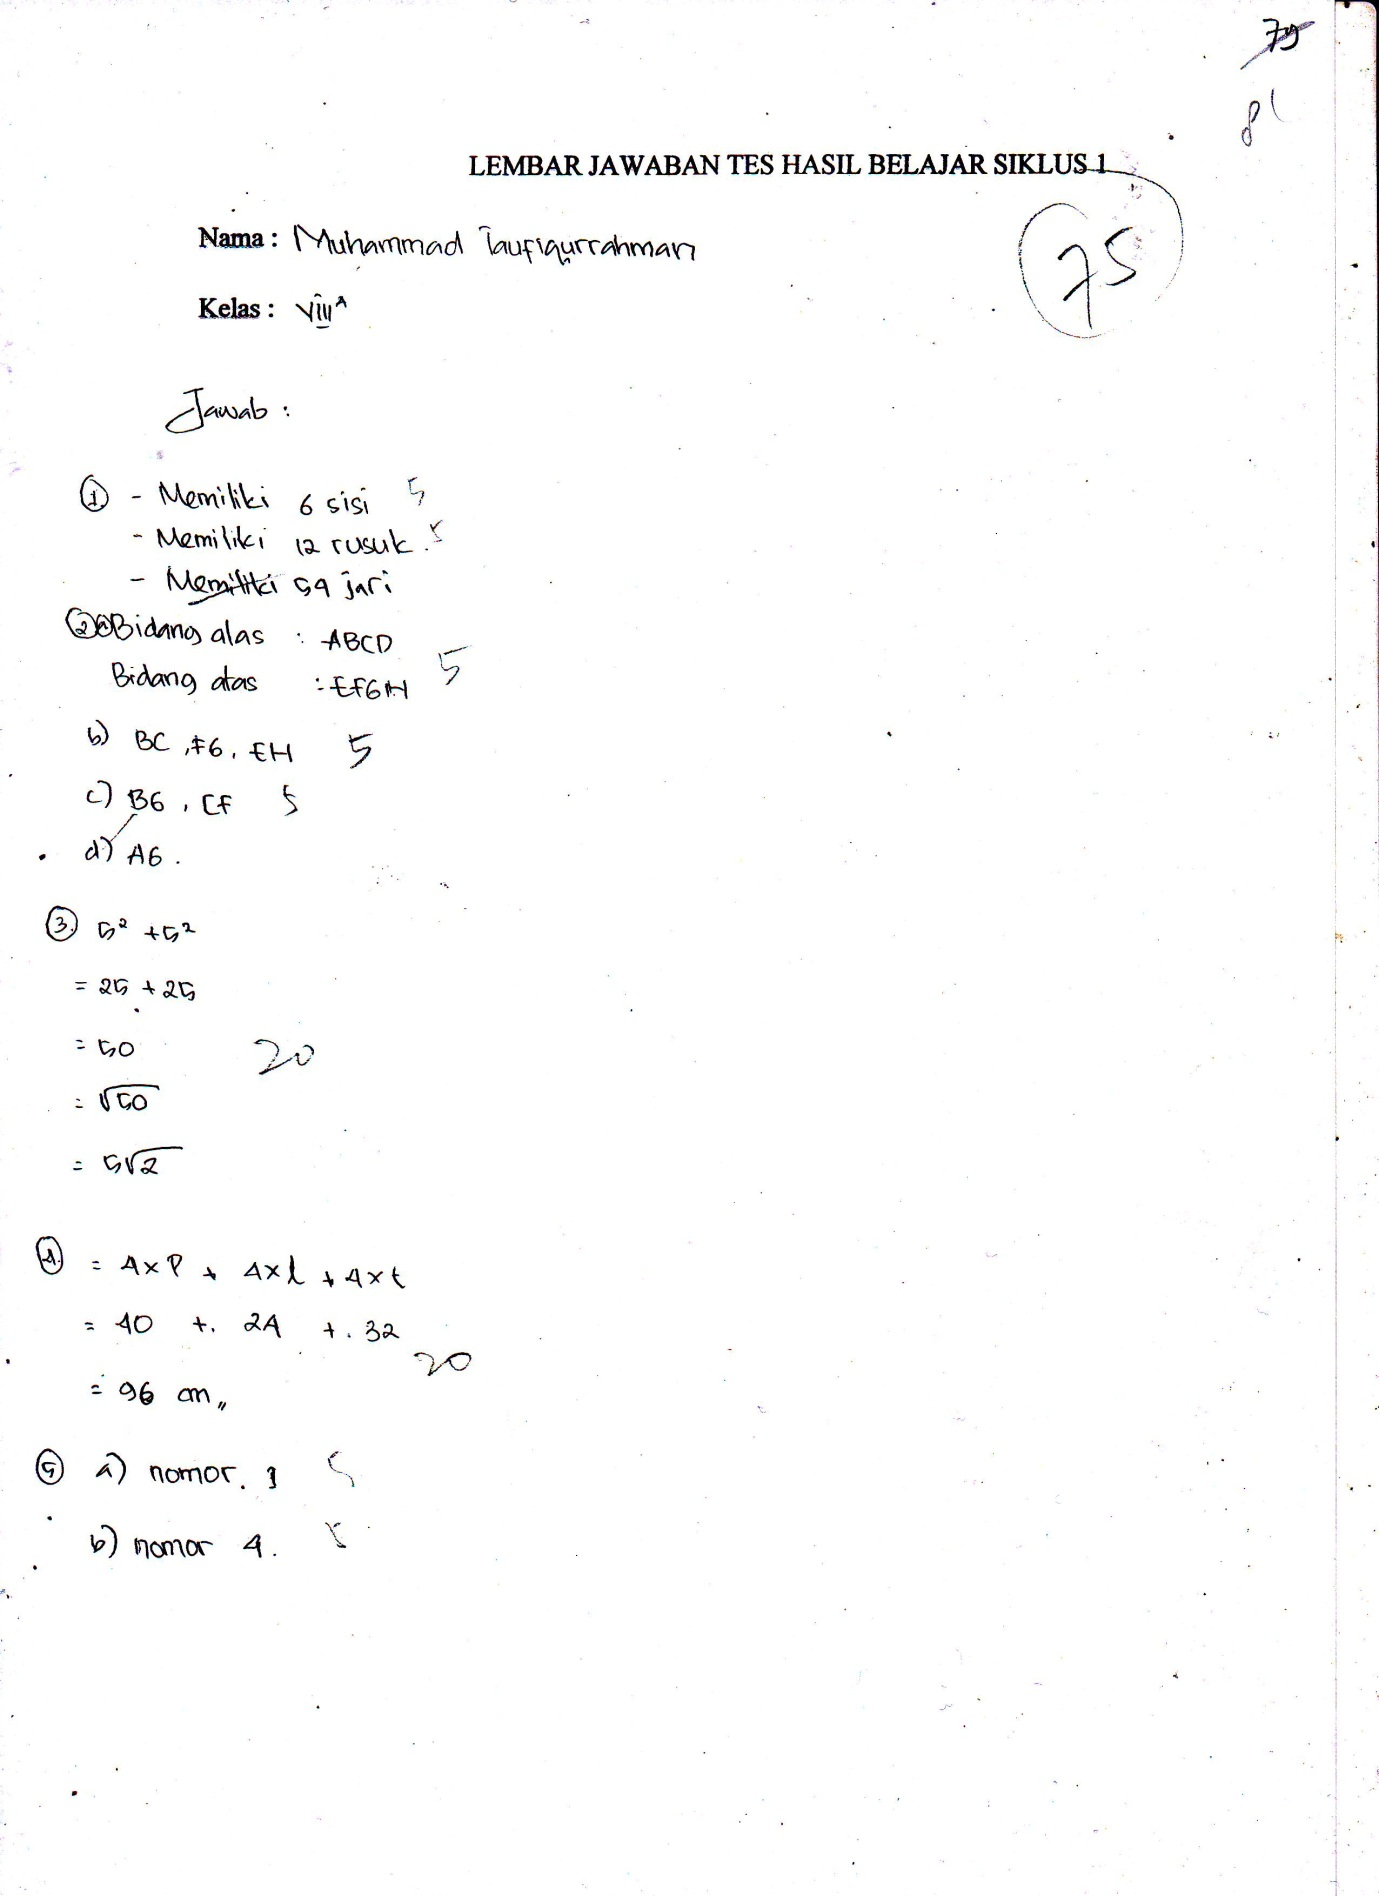 79
81
LEMBAR JAWABAN TES HASIL BELAJAR SIKLUS 1
75
Nama : Muhammad Taufiqurrahman
Kelas : VIII A
Jawab :
1. - Memiliki 6 sisi 5
- Memiliki 12 rusuk. 5
- Memiliki 54 jari
2. a) Bidang alas : ABCD
Bidang atas : EFGH 5
b) BC, FG, EH 5
c) BG, CF 5
d) AG.
3. 5² + 5²
= 25 + 25
= 50 20
= √50
= 5√2
4. = 4xP + 4xl + 4xt
= 40 +. 24 +. 32
20
= 96 cm,,
5 a) nomor. 1 5
b) nomor 4. 5